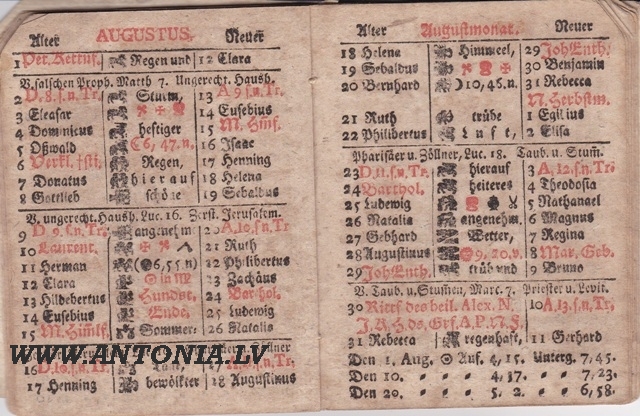 Alter AUGUSTUS. Neuer
1 Pet. Kettnf. Regen und 12 Clara
V. falschen Proph. Matth 7. Ungerecht. Haush.
2 D. 8. s. n. Tr. Sturm, 13 A 9 s. n. Tr.
3 Eleasar 14 Eusebius
4 Dominicus heftiger 15 M. Hmf.
5 Oßwald 6, 47. n. 16 Isaac
6 Verkl. Regen, 17 Henning
7 Donatus hierauf 18 Helena
8 Gottlieb schöne 19 Sebaldus
V. ungerecht. Haush. Luc. 16. Zerst. Jerusalem.
9 D. 9. s. n. Tr. angenehm 20 A. 10. s. n. Tr.
10 Laurent. 21 Ruth
11 Herman 6, 55 n) 22 Philibertus
12 Clara in 23 Zachäus
13 Hildebertus Hundst. 24 Barthol.
14 Eusebius Ende, 25 Ludwig
15 M. Himlf. Sommer- 26 Natalis
Zöllner
16 D. 10. s. n. Tr. 27
17 Henning bewölkter 28 Augustinus
WWW.ANTONIA.LV
Alter Augustmonat. Neuer
18 Helena Himmel, 29 Joh Enth.
19 Sebaldus 30 Benjamin
20 Bernhard 10, 46. n. 31 Rebecca
N. Herbstm.
21 Ruth trübe 1 Egilius
22 Philibertus Luft, 2 Elisa
Pharisäer u. Zöllner, Luc. 18. Taub. u. Stum.
23 D. 11. s. n. Tr. hierauf 3 A. 12. s. n. Tr.
24 Barthol. heiteres 4 Theodosia
25 Ludwig 5 Nathanael
26 Natalis angenehm. 6 Magnus
27 Gebhard Wetter, 7 Regina
28 Augustinus 9, 20. v. 8 Mar. Geb.
29 Joh Enth. trüb und 9 Bruno
V. Taub. u. Stummen, Marc. 7. Priester u. Levit.
30 Ritterf des heil. Alex. N. 10 A. 13. s. n. Tr.
31 Rebecca regenhaft, 11 Gerhard
Den 1. Aug. Auf. 4, 15. Unterg. 7, 45.
Den 10. 4, 37. 7, 23.
Den 20. 5, 2. 6, 58.